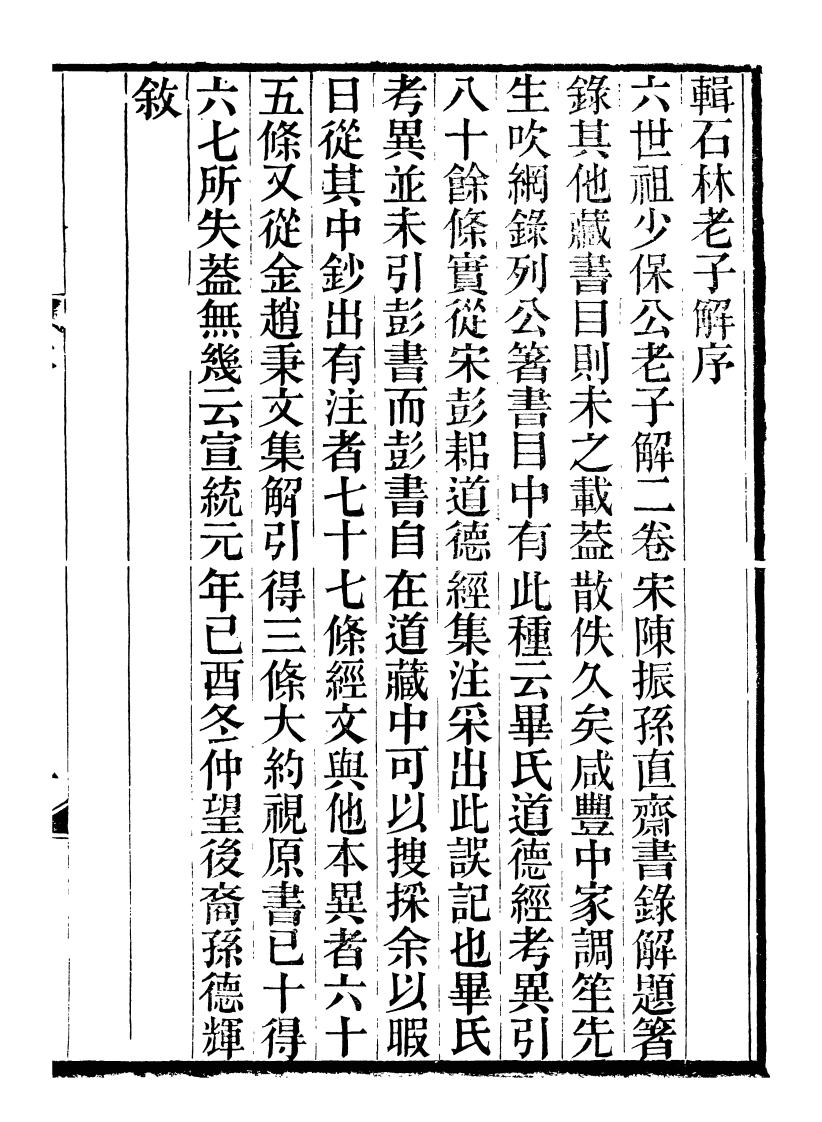 輯石林老子解序
六世祖少保公老子解二卷宋陳振孫直齋書錄解題箸
錄其他藏書目則未之載葢散佚久矣咸豐中家調笙先
生吹網錄列公箸書目中有此種云畢氏道德經考異引
八十餘條實從宋彭耜道德經集注采出此誤記也畢氏
考異並未引彭書而彭書自在道藏中可以搜採余以暇
日從其中鈔出有注者七十七條經文與他本異者六十
五條又從金趙秉文集解引得三條大約視原書已十得
六七所失葢無幾云宣統元年已酉冬仲望後裔孫德輝
敘